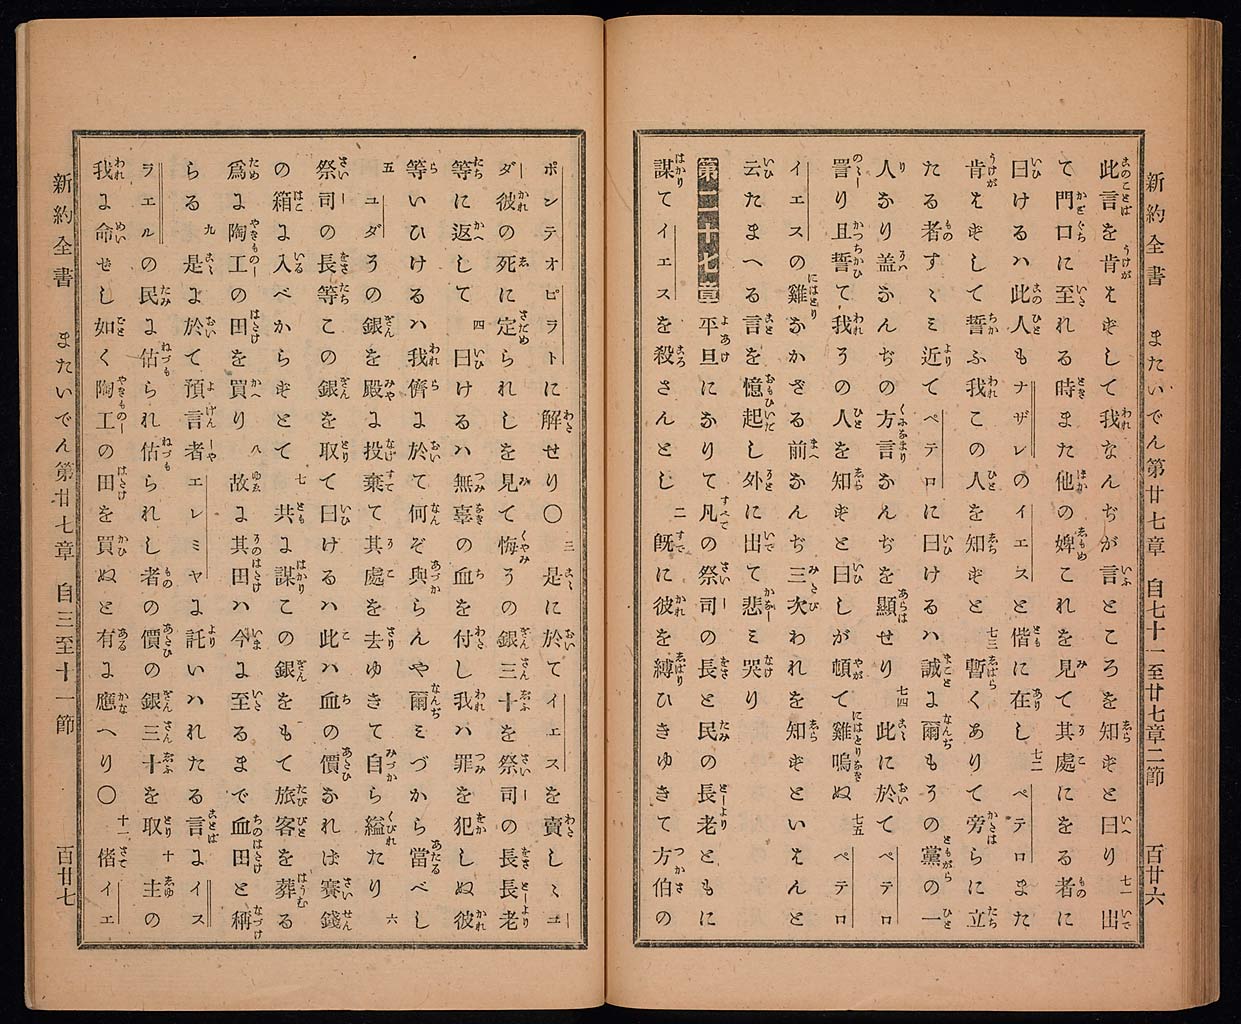 新約全書　またいでん第廿七章　自七十一至廿七章二節　百廿六
此言を肯はずして我なんぢが言ところを知ずと曰り 七一 出
て門口に至れる時また他の婢これを見て其處にをる者に
曰けるハ此人もナザレのイエスと偕に在し 七二 ペテロまた
肯はずして誓ふ我この人を知ずと 七三 暫くありて旁らに立
たる者すゝミ近てペテロに曰けるハ誠に爾もその黨の一
人なり蓋なんぢの方言なんぢを顯せり 七四 此に於てペテロ
詈り且誓て我その人を知ずと曰しが頓て雞鳴ぬ 七五 ペテロ
イエスの雞なかざる前なんぢ三次われを知ずといはんと
云たまへる言を憶起し外に出て悲ミ哭り
第二十七章 平旦になりて凡の祭司の長と民の長老ともに
謀てイエスを殺さんとし 二 旣に彼を縛ひきゆきて方伯の
ポンテオピラトに解せり〇 三 是に於てイエスを賣しゝユ
ダ彼の死に定られしを見て悔その銀三十を祭司の長長老
等に返して 四 曰けるハ無辜の血を付し我ハ罪を犯しぬ彼
等いひけるハ我儕に於て何ぞ與らんや爾ミづから當べし
五 ユダその銀を殿に投棄て其處を去ゆきて自ら縊たり 六
祭司の長等この銀を取て曰けるハ此ハ血の價なれば賽錢
の箱に入べからずとて 七 共に謀この銀をもて旅客を葬る
爲に陶工の田を買り 八 故に其田ハ今に至るまで血田と稱
らる 九 是に於て預言者エレミヤに託いはれたる言にイス
ラエルの民に估られ估られし者の價の銀三十を取 十 主の
我に命せし如く陶工の田を買ぬと有に應へり〇 十一 偖イエ
新約全書　またいでん第廿七章　自三至十一節　百廿七